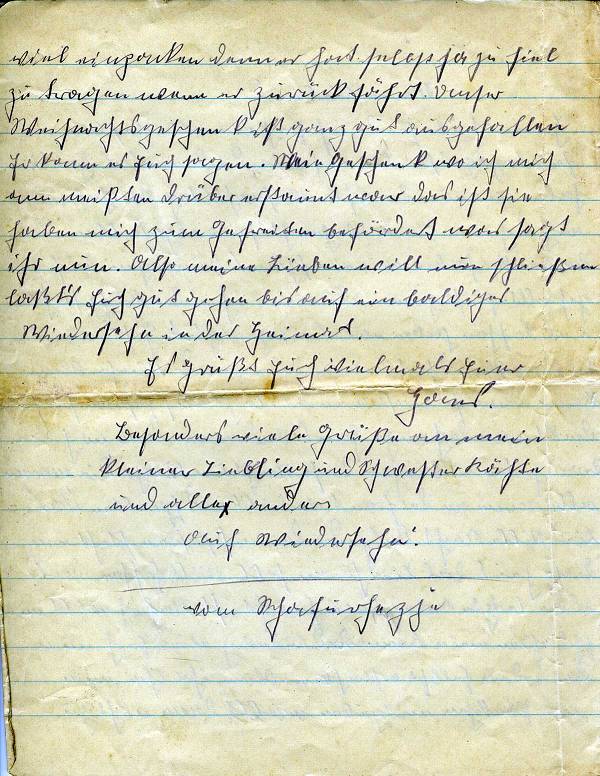 viel einpacken denn er hat selbst ja zu fiel
zu tragen wenn er zurück fährt. Unser
Weihnachtsgeschenk ist ganz gut ausgefallen
Er kann es Euch sagen. Mein Geschenk wo ich mich
am meißten drüber erstaunt war das ist sie
haben mich zum Gefreiten befördert was sagt
ihr nun. Also meine Lieben will nun schließen
laßt's Euch gut gehen bis auf ein baldiges
Wiedersehn in der Heimat.
Es grüßt Euch vielmals Euer
Hans.
Besonders viele Grüße an mein
kleiner Liebling und Schwester Käthe
und alle andern
Auf Wiedersehn!
vom